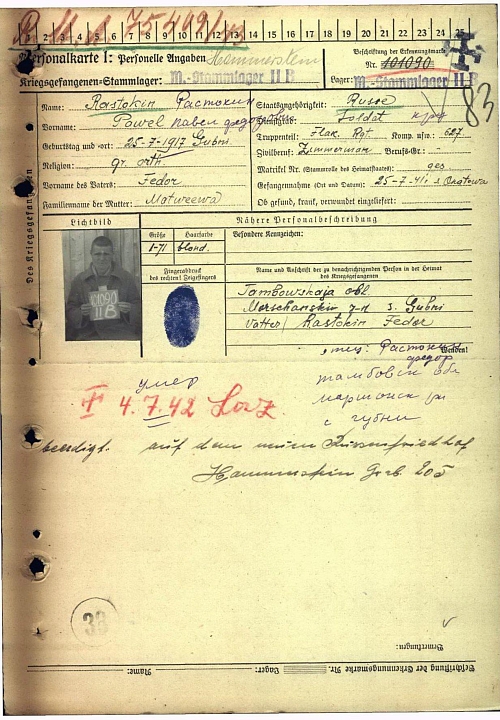 2 3 4 5 6 7 8 9 10 11 12 13 14 15 16 17 18 19 20 21 22 23 24 25
Personalkarte I: Personelle Angaben Hammerstein
Beschriftung der Erkennungsmarke
Nr. 101090
Kriegsgefangenen-Stammlager: M.-Stammlager II B
Lager: M.-Stammlager II B
83
Des Kriegsgefangenen
Name: Rastokin Растокин
Staatsangehörigkeit: Russe
Vorname: Pawel Павел
Dienstgrad: Soldat
Geburtstag und -ort: 25-7-1917 Gubni
Truppenteil: Flak. Rgt. Komp. usw.: 627
Religion: gr. orth.
Zivilberuf: Zimmerman Berufs-Gr.: -
Vorname des Vaters: Fedor
Matrikel Nr. (Stammrolle des Heimatstaates): ges
Familienname der Mutter: Matweewa
Gefangennahme (Ort und Datum): 25-7-41
Ob gesund, krank, verwundet eingeliefert:
Lichtbild
Nähere Personalbeschreibung
Größe Haarfarbe
1-71 blond.
Besondere Kennzeichen:
Fingerabdruck
des rechten! Zeigefingers
Name und Anschrift der zu benachrichtigenden Person in der Heimat
des Kriegsgefangenen
101090
II B
Tambowskaja obl.
Morschanskij s. Gubni
Vatter Rastokin Fedor
Wenden!
отец: Растокин
федор
тамбовск обл
с губни
умер
4.7.42 Laz.
beerdigt. auf dem neuen Russenfriedhof
Hammerstein Grb. 205
38
Bemerkungen:
Beschriftung der Erkennungsmarke Nr. Lager: Name: